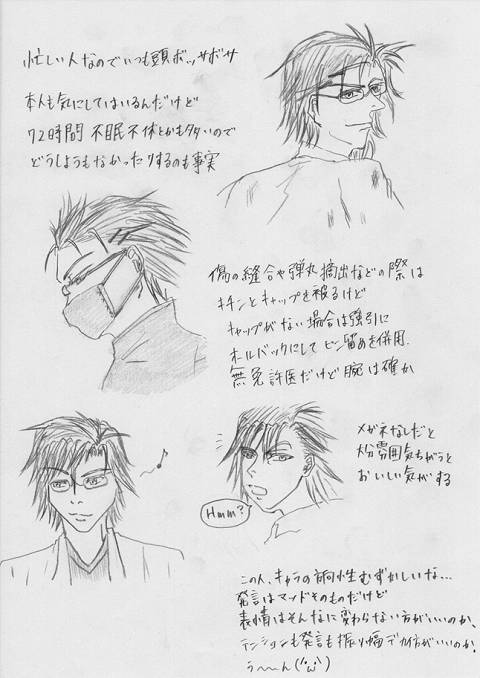 忙しい人なのでいつも頭ボッサボサ
本人も気にしてはいるんだけど
72時間 不眠不休とかも多いので
どうしようもなかったりするのも事実
傷の縫合や弾丸摘出などの際は
キチンとキャップを被るけど
キャップがない場合は強引に
オールバックにしてピン留めを併用.
無免許医だけど腕は確か
メガネなしだと
大分雰囲気ちがうと
おいしい気がする
Hmm?
この人、キャラの方向性むずかしいな…
発言はマッドそのものだけど
表情はそんなに変わらない方がいいのか、
テンションも発言も振り幅デカイ方がいいのか.
う〜〜ん(´・ω・`)